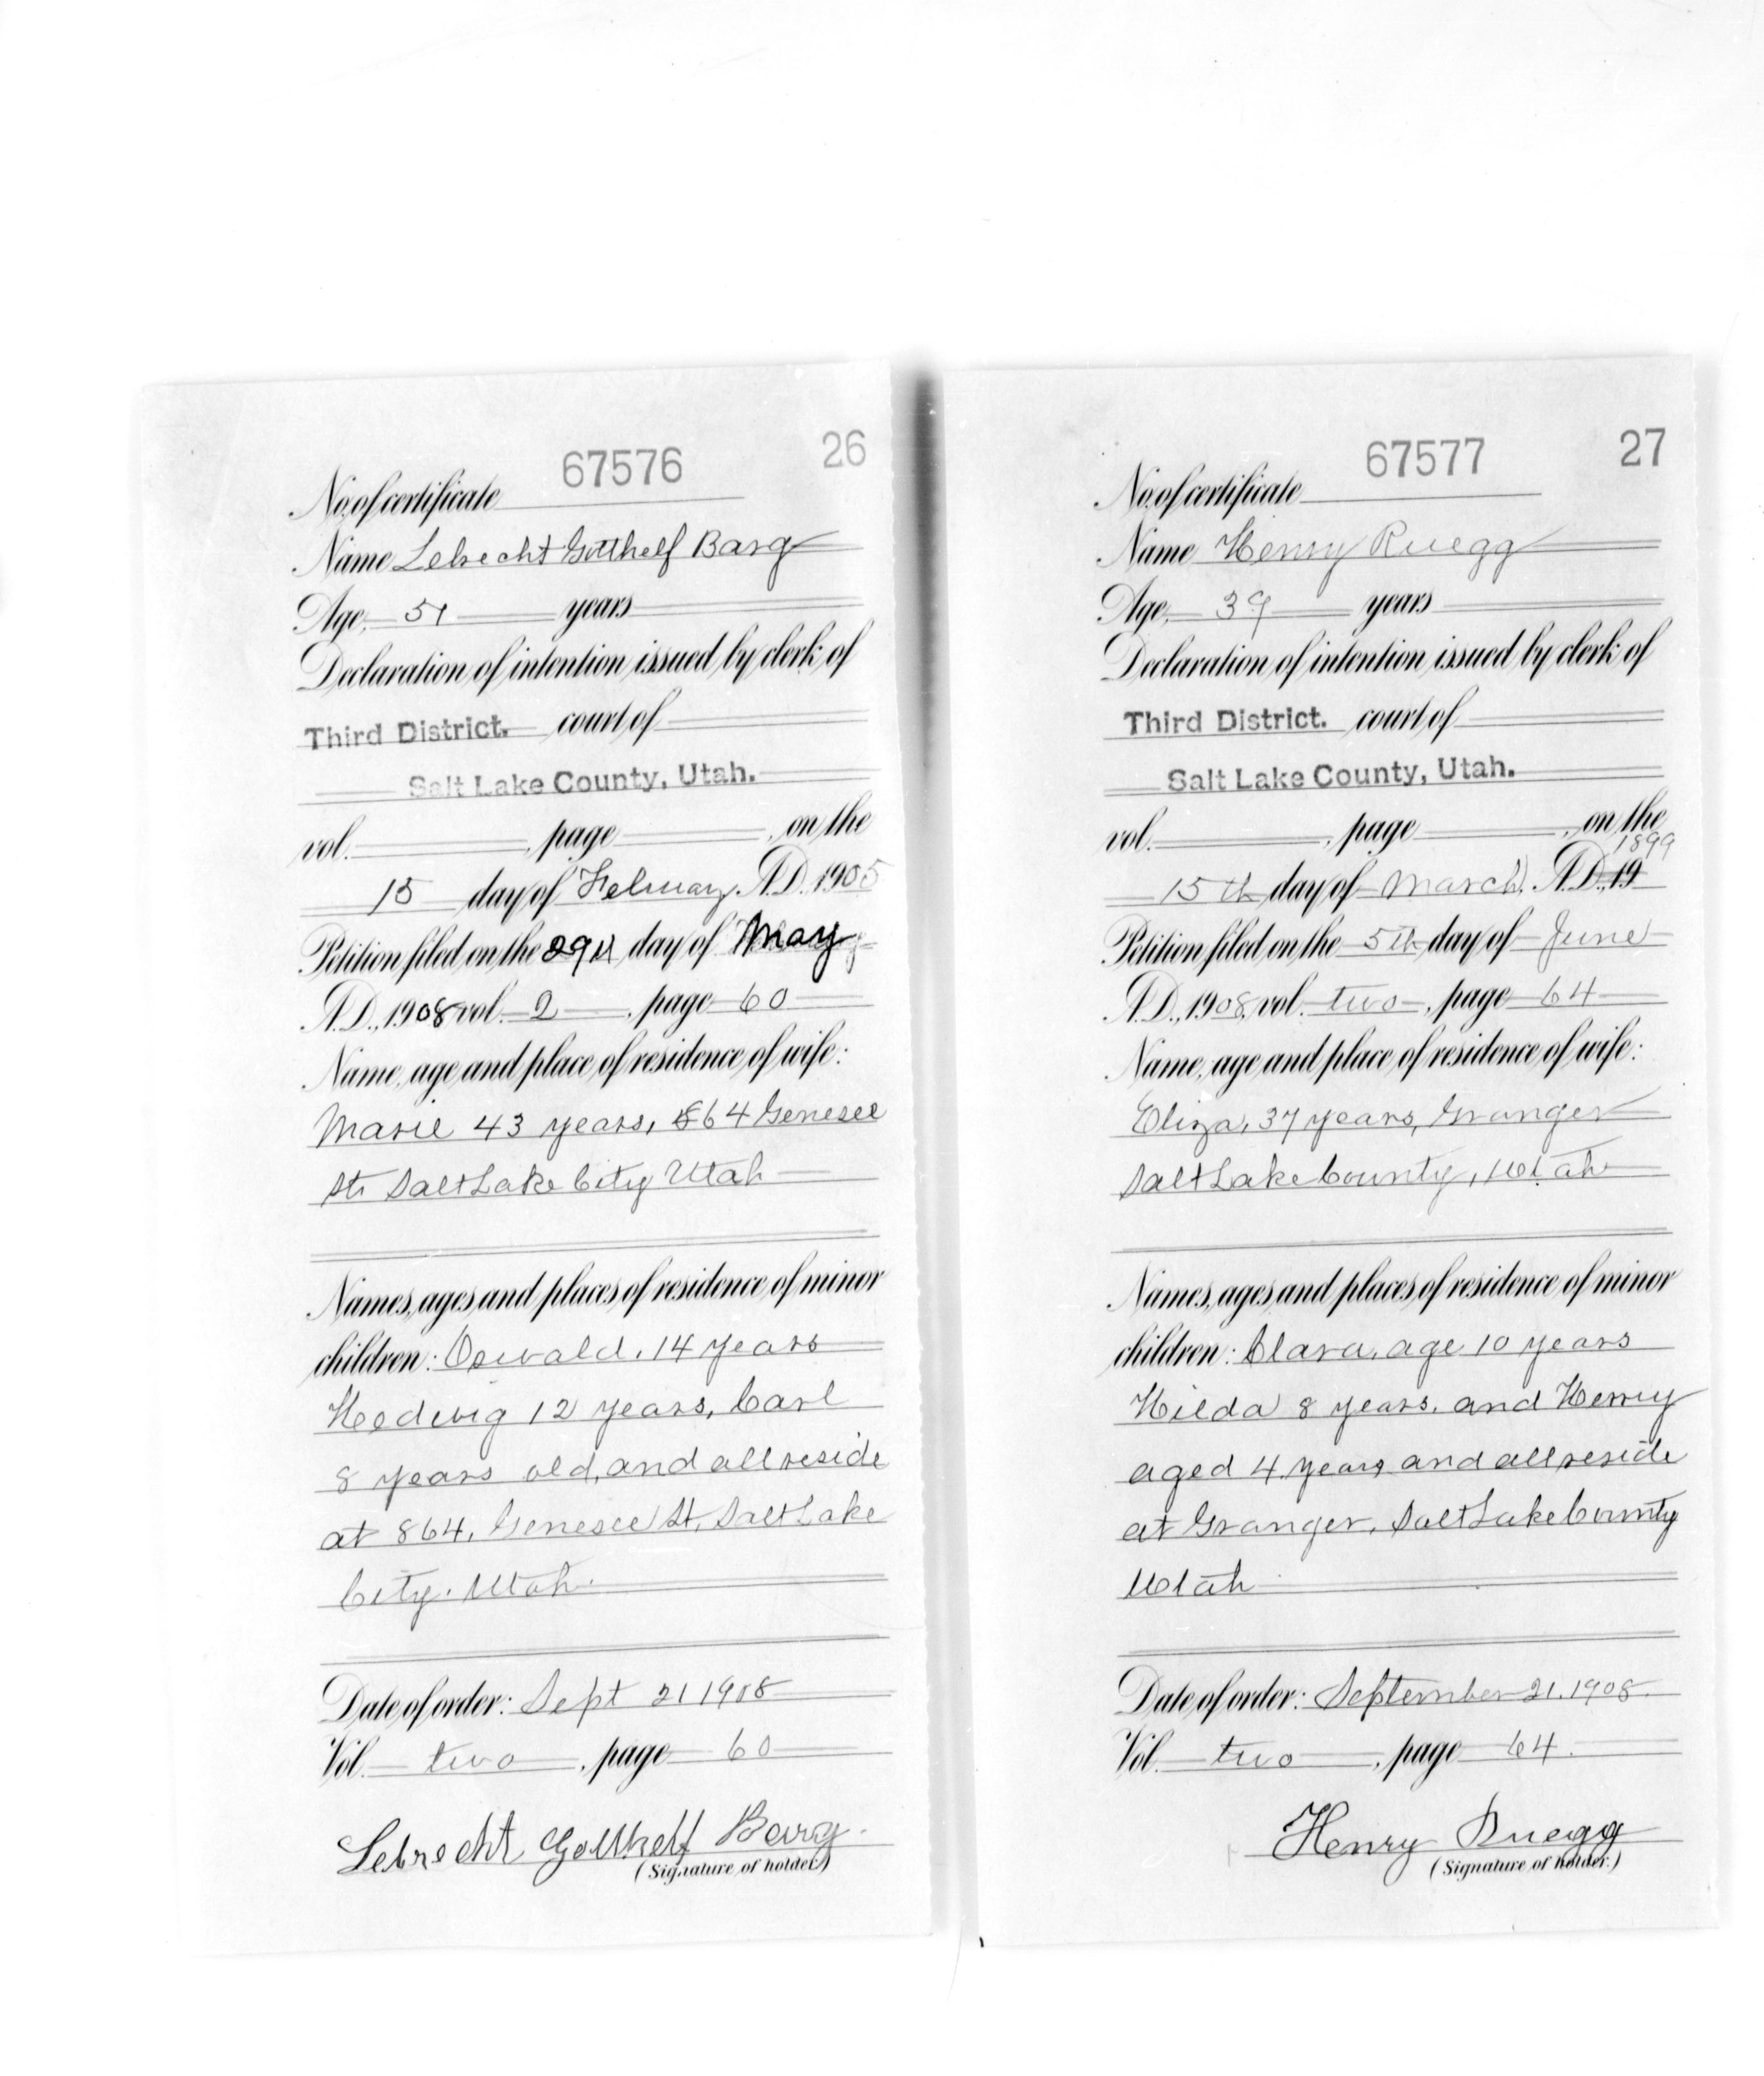 67576 26
No. of certificate
Name Lebrecht Gotthelf Barg
Age, 51 years
Declaration of intention issued by clerk of
Third District. court of
Salt Lake County, Utah.
vol. , page , on the
15 day of February A.D. 1905
Petition filed on the 29th day of May
A.D., 1908 vol. 2 , page 60
Name, age and place of residence of wife:
Marie 43 years, 864 Genesee
St. Salt Lake City Utah
Names, ages and places of residence of minor
children: Oswald, 14 years
Hedwig 12 years, Carl
8 years old, and all reside
at 864, Genesee St, Salt Lake
City. Utah.
Date of order: Sept 21 1908
Vol. two , page 60
Lebrecht Gotthelf Barg.
(Signature of holder)
67577 27
No. of certificate
Name Henry Ruegg
Age, 39 years
Declaration of intention issued by clerk of
Third District. court of
Salt Lake County, Utah.
vol. , page , on the
1899
15th day of March, A.D. 19
Petition filed on the 5th day of June
A.D., 1908, vol. two , page 64
Name, age and place of residence of wife:
Eliza, 37 years, Granger
Salt Lake County, Utah
Names, ages and places of residence of minor
children: Clara, age 10 years
Hilda 8 years, and Henry
aged 4 years and all reside
at Granger, Salt Lake County
Utah
Date of order: September 21, 1908.
Vol. two , page 64.
Henry Ruegg
(Signature of holder.)